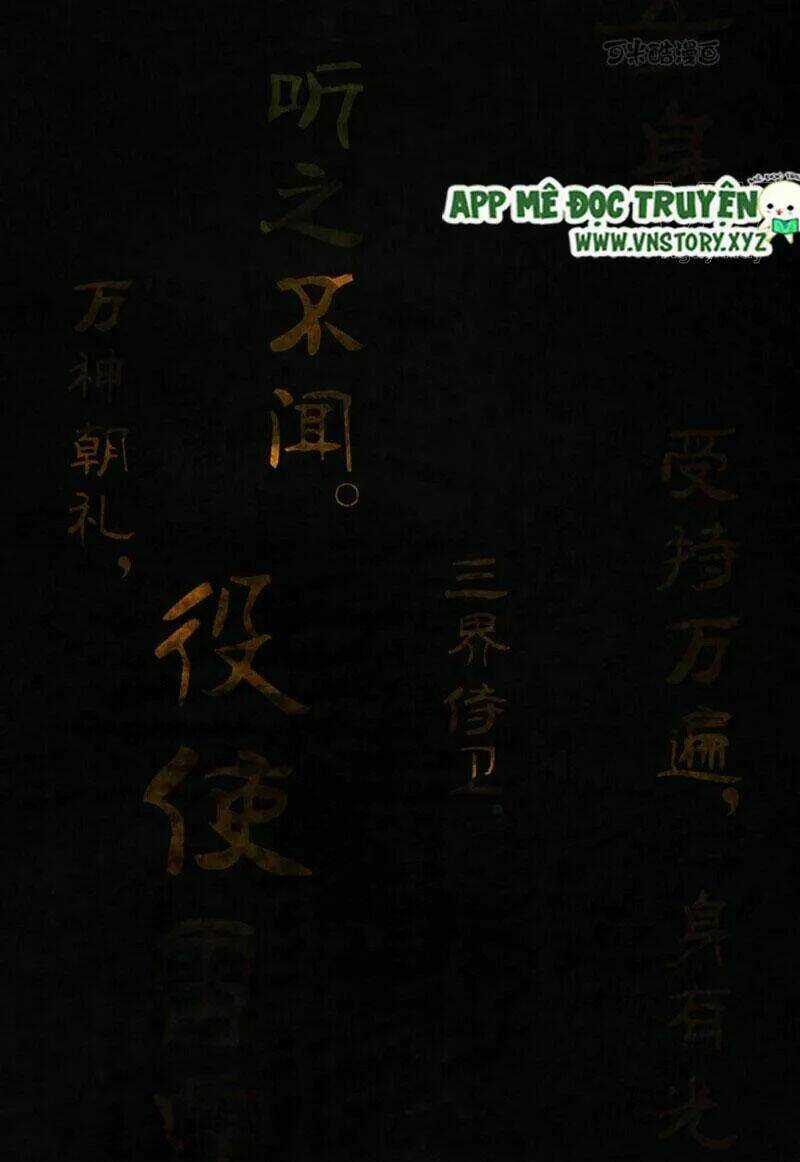 可米酷漫画
身
APP MÊ ĐỌC TRUYỆN
WWW.VNSTORY.XYZ
受持万遍，
身有光
三界侍卫
听之不闻。
役使雷
万神朝礼，